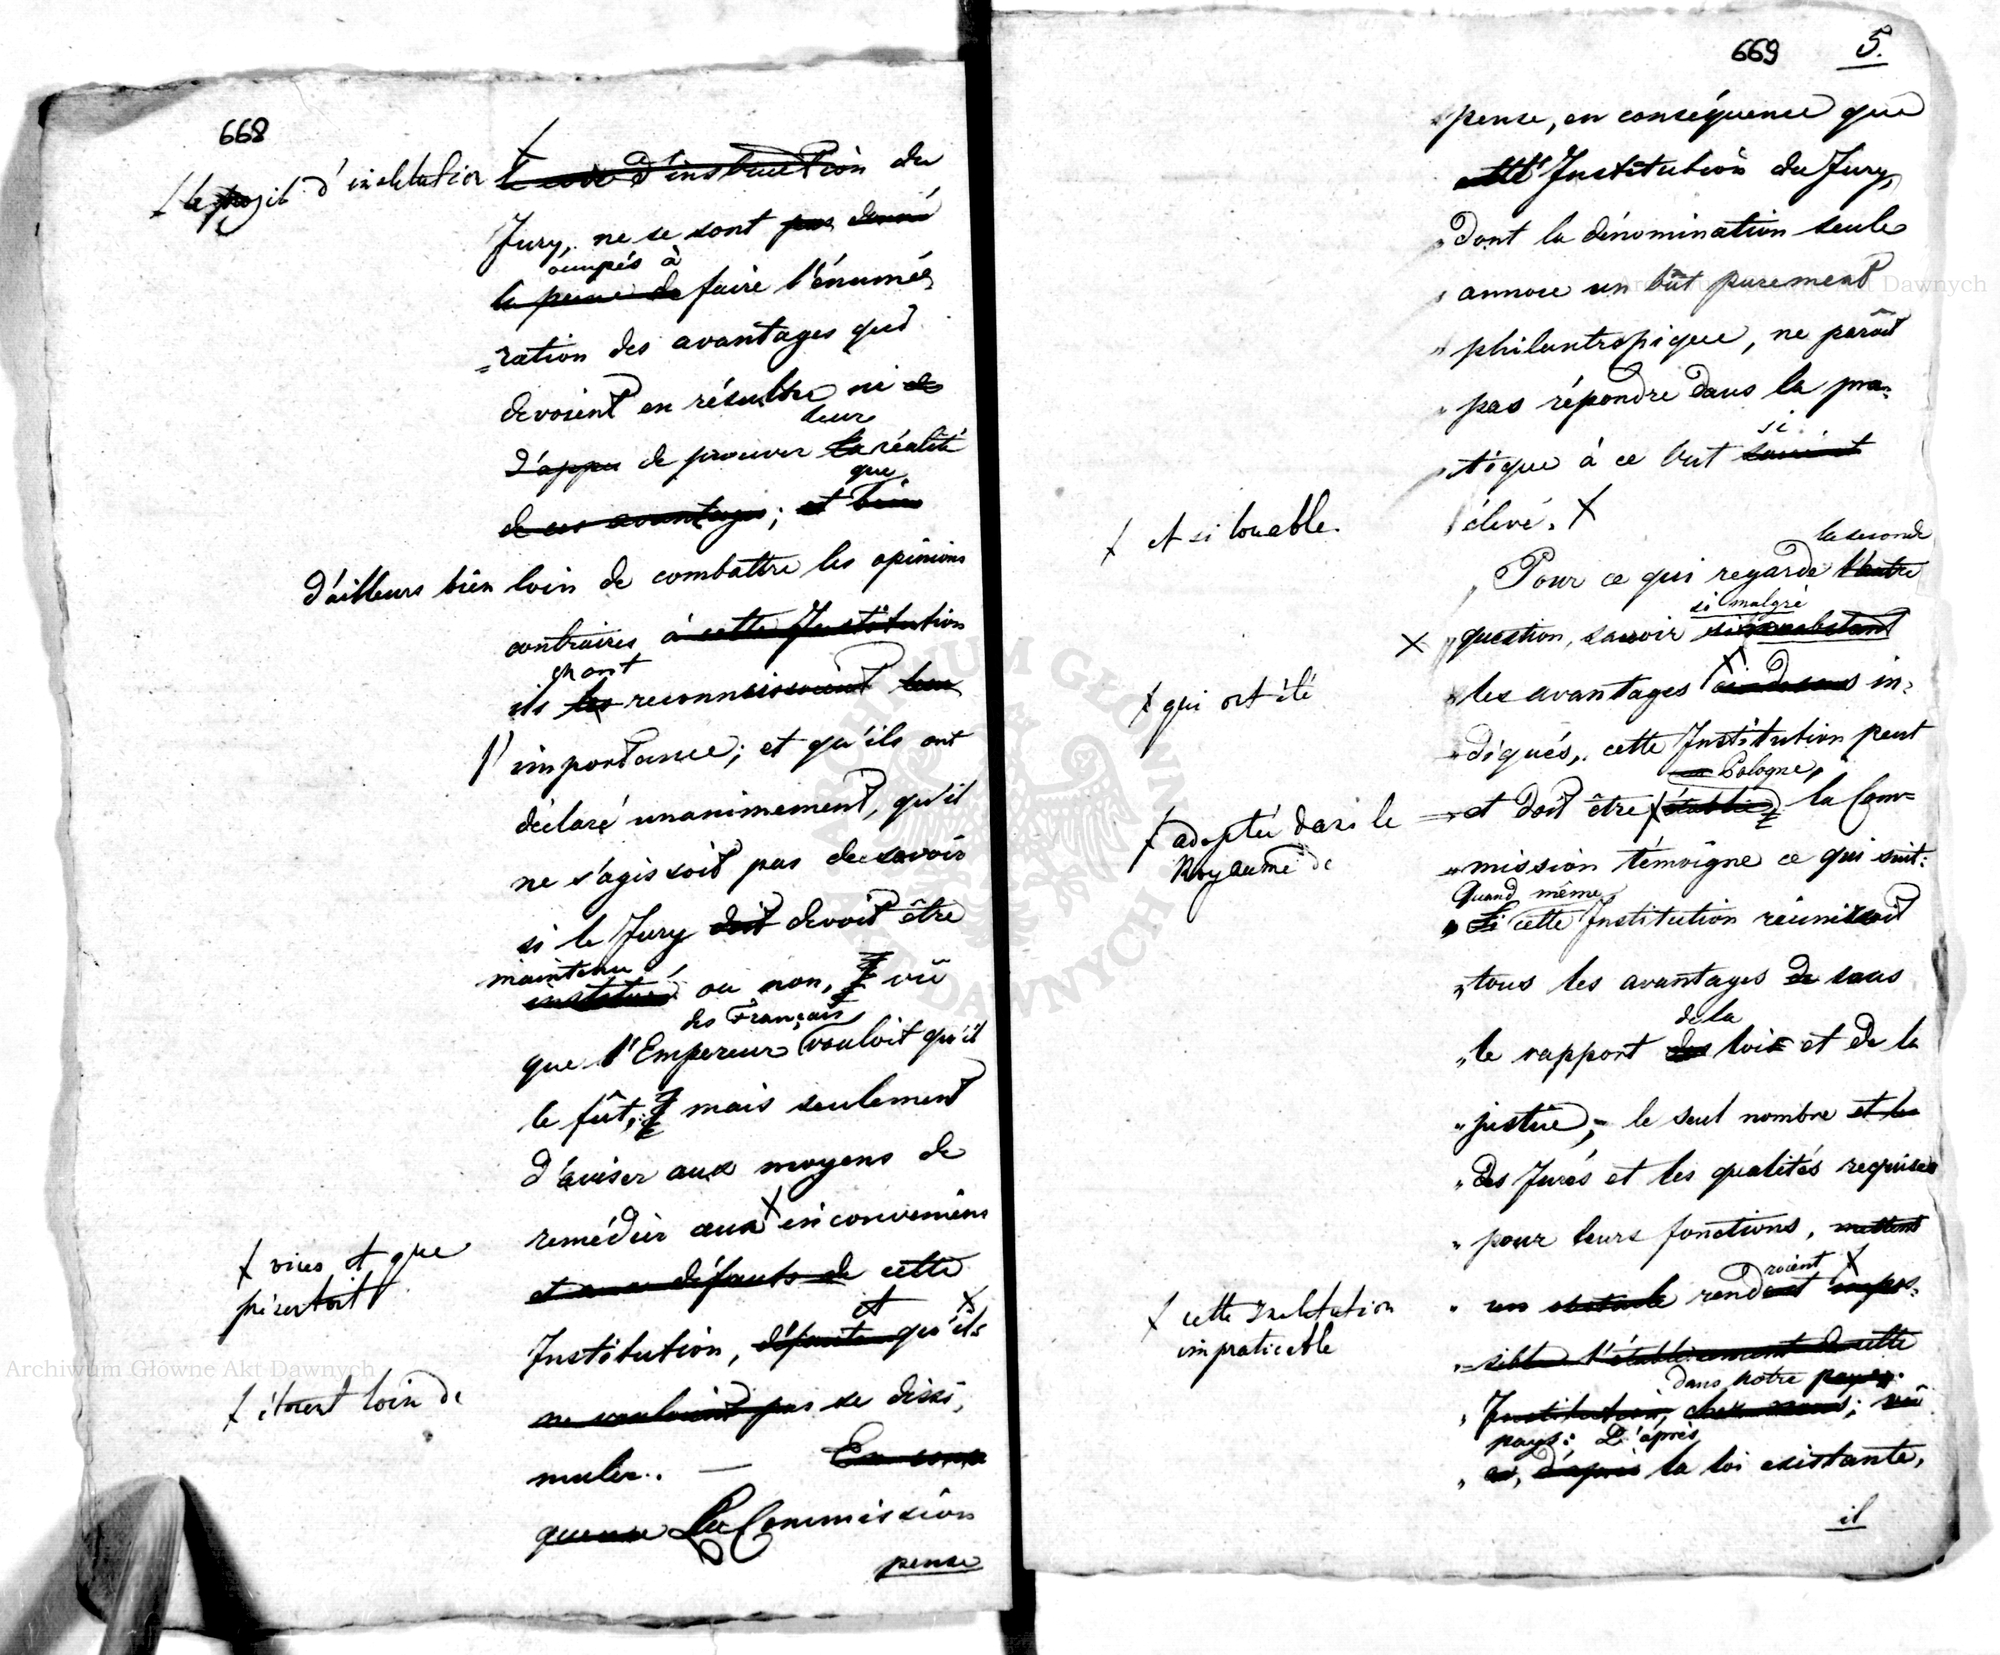 668
† le projit d'institution le code d'instruction du
Jury, ne se sont pas donné
ócupés à
la peine de faire l'énumé,
=ration des avantages qui
devoient en résulter ni de
leur
d'appui de prouver la réalité
que
de ces avantages; et bien
d'ailleurs bien loin de combattre les opinions
contraires à cette Institution
en ont
ils les reconnaissoient leur
l'importance; et qu'ils ont
déclaré unanimement, qu'il
ne s'agissoit pas de savoir
si le Jury doit devoit être
maintenu
institué ou non, vû
des Français
que l'Empereur vouloit qu'il
le fût, mais seulement
d'aviser aux moyens de
remédier aux × inconveniens
† vices et que
présentoit
et aux défauts de cette
et ×
Institution, défauts qu'ils
† étoient loin de
ne vouloient pas se dissi,
muler. — En consé
quence La Commission
pense
669 5.
pense, en conséquence que
cette l'Institution du Jury,
„ dont la dénomination seule
„ annonce un bût purement
„ philantropique, ne paroit
„ pas répondre dans la pra=
si
„ tique à ce but
„ élevé. ×
† et si louable.
la seconde
„ Pour ce qui regarde l'autre
si malgré
× „ question, savoir si nonobstant
„ les avantages × ci dessus in=
† qui ont été
„ diqués, cette Institution peut
en Pologne,
„ et doit être † établie, la Com=
† adoptée dans le
Royaume de
„ mission témoigne ce qui suit:
Quand même
„ Si cette Institution réunissoit
„ tous les avantages de sous
de la
„ le rapport des lois et de la
„ justice; le seul nombre et les
„ des Jurés et les qualités requises
„ pour leurs fonctions, mettent
roient ×
„ un obstacle rendent impos=
† cette Institution
impraticable
„ =sible l'établissement de cette
dans notre pays;
„ Institution, chez nous; vû
pays: D'après
„ d'après la loi existante,
il